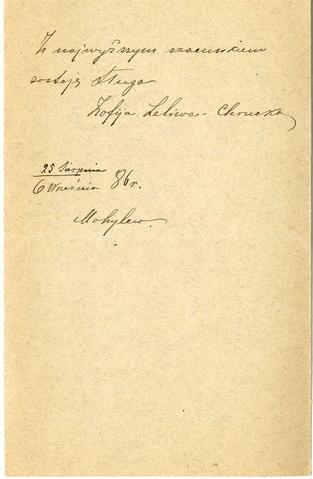 Z najwyższym szacunkiem
zostaję sługa
Zofija Leliwa-Chrucka
25 Sierpnia
6 Września 86 r.
Mohylew.